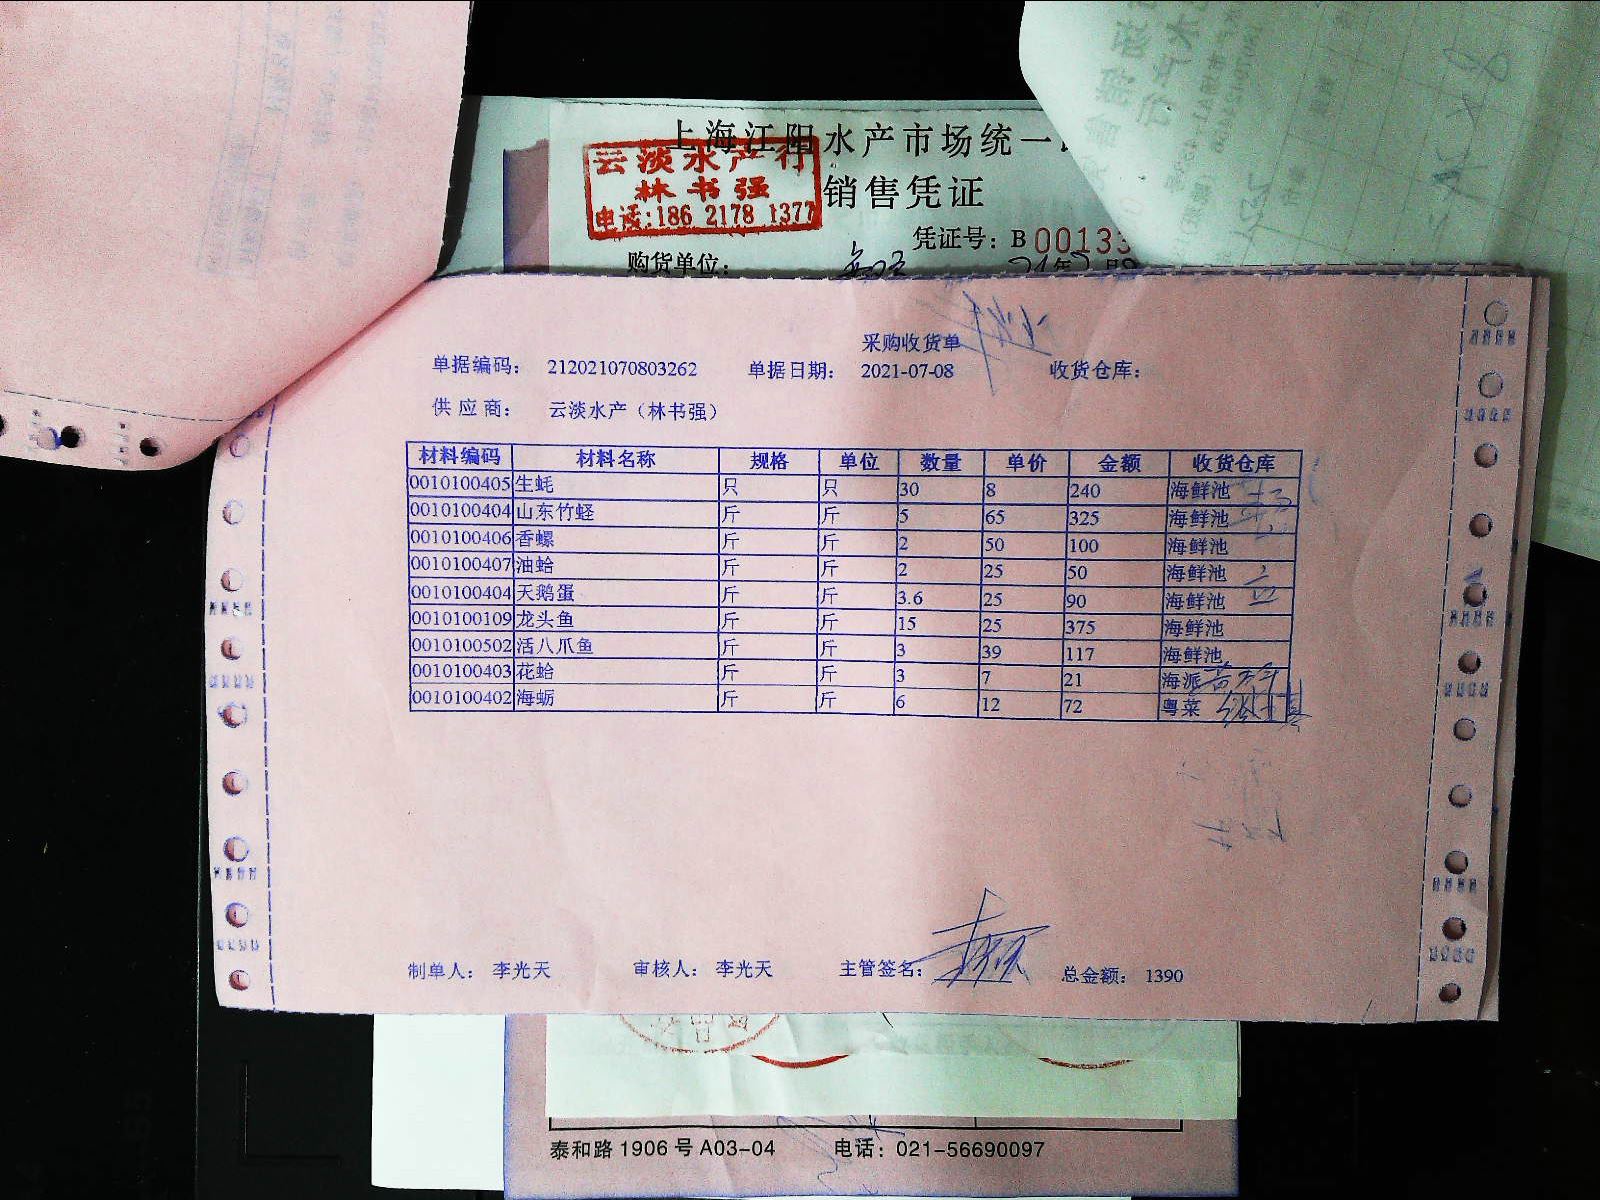 上海江阳水产市场统一
云淡水产行
林书强
电话:186 2178 1377
销售凭证
凭证号：B00133
购货单位：
采购收货单
单据编码： 212021070803262 单据日期： 2021-07-08 收货仓库：
供应商： 云淡水产（林书强）
材料编码 材料名称 规格 单位 数量 单价 金额 收货仓库
0010100405 生蚝 只 只 30 8 240 海鲜池
0010100404 山东竹蛏 斤 斤 5 65 325 海鲜池
0010100406 香螺 斤 斤 2 50 100 海鲜池
0010100407 油蛤 斤 斤 2 25 50 海鲜池
0010100404 天鹅蛋 斤 斤 3.6 25 90 海鲜池
0010100109 龙头鱼 斤 斤 15 25 375 海鲜池
0010100502 活八爪鱼 斤 斤 3 39 117 海鲜池
0010100403 花蛤 斤 斤 3 7 21 海派
0010100402 海蛎 斤 斤 6 12 72 粤菜
制单人： 李光天 审核人： 李光天 主管签名： 总金额： 1390
泰和路1906号A03-04 电话：021-56690097